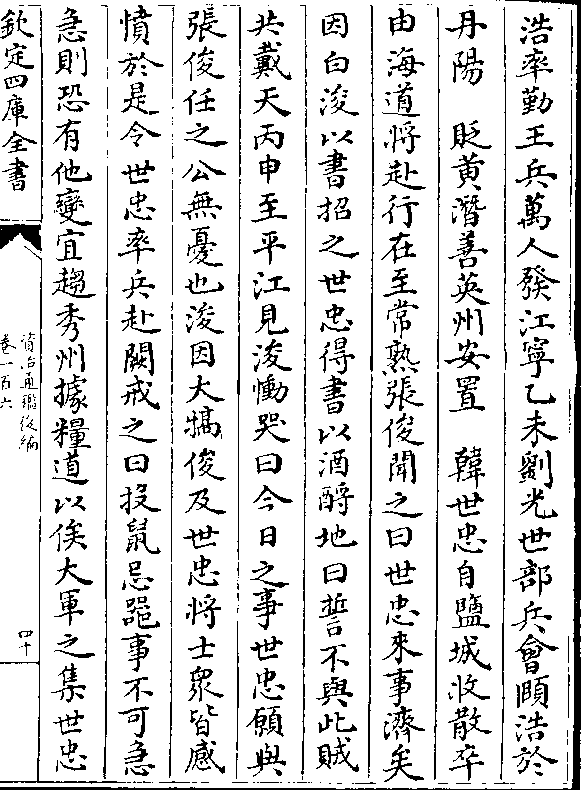 浩率勤王兵萬人發江寧乙未劉光世部兵會頤浩於
丹陽　貶黄潛善英州安置　韓世忠自鹽城收散卒
由海道將赴行在至常熟張俊聞之曰世忠來事濟矣
因白浚以書招之世忠得書以酒酹地曰誓不與此賊
共戴天丙申至平江見浚慟哭曰今日之事世忠願與
張俊任之公無憂也浚因大犒俊及世忠將士衆皆感
憤於是令世忠率兵赴闕戒之曰投鼠忌器事不可急
急則恐有他變宜趨秀州據糧道以俟大軍之集世忠
欽定四庫全書
資治通鑑後編
卷一百六
四十